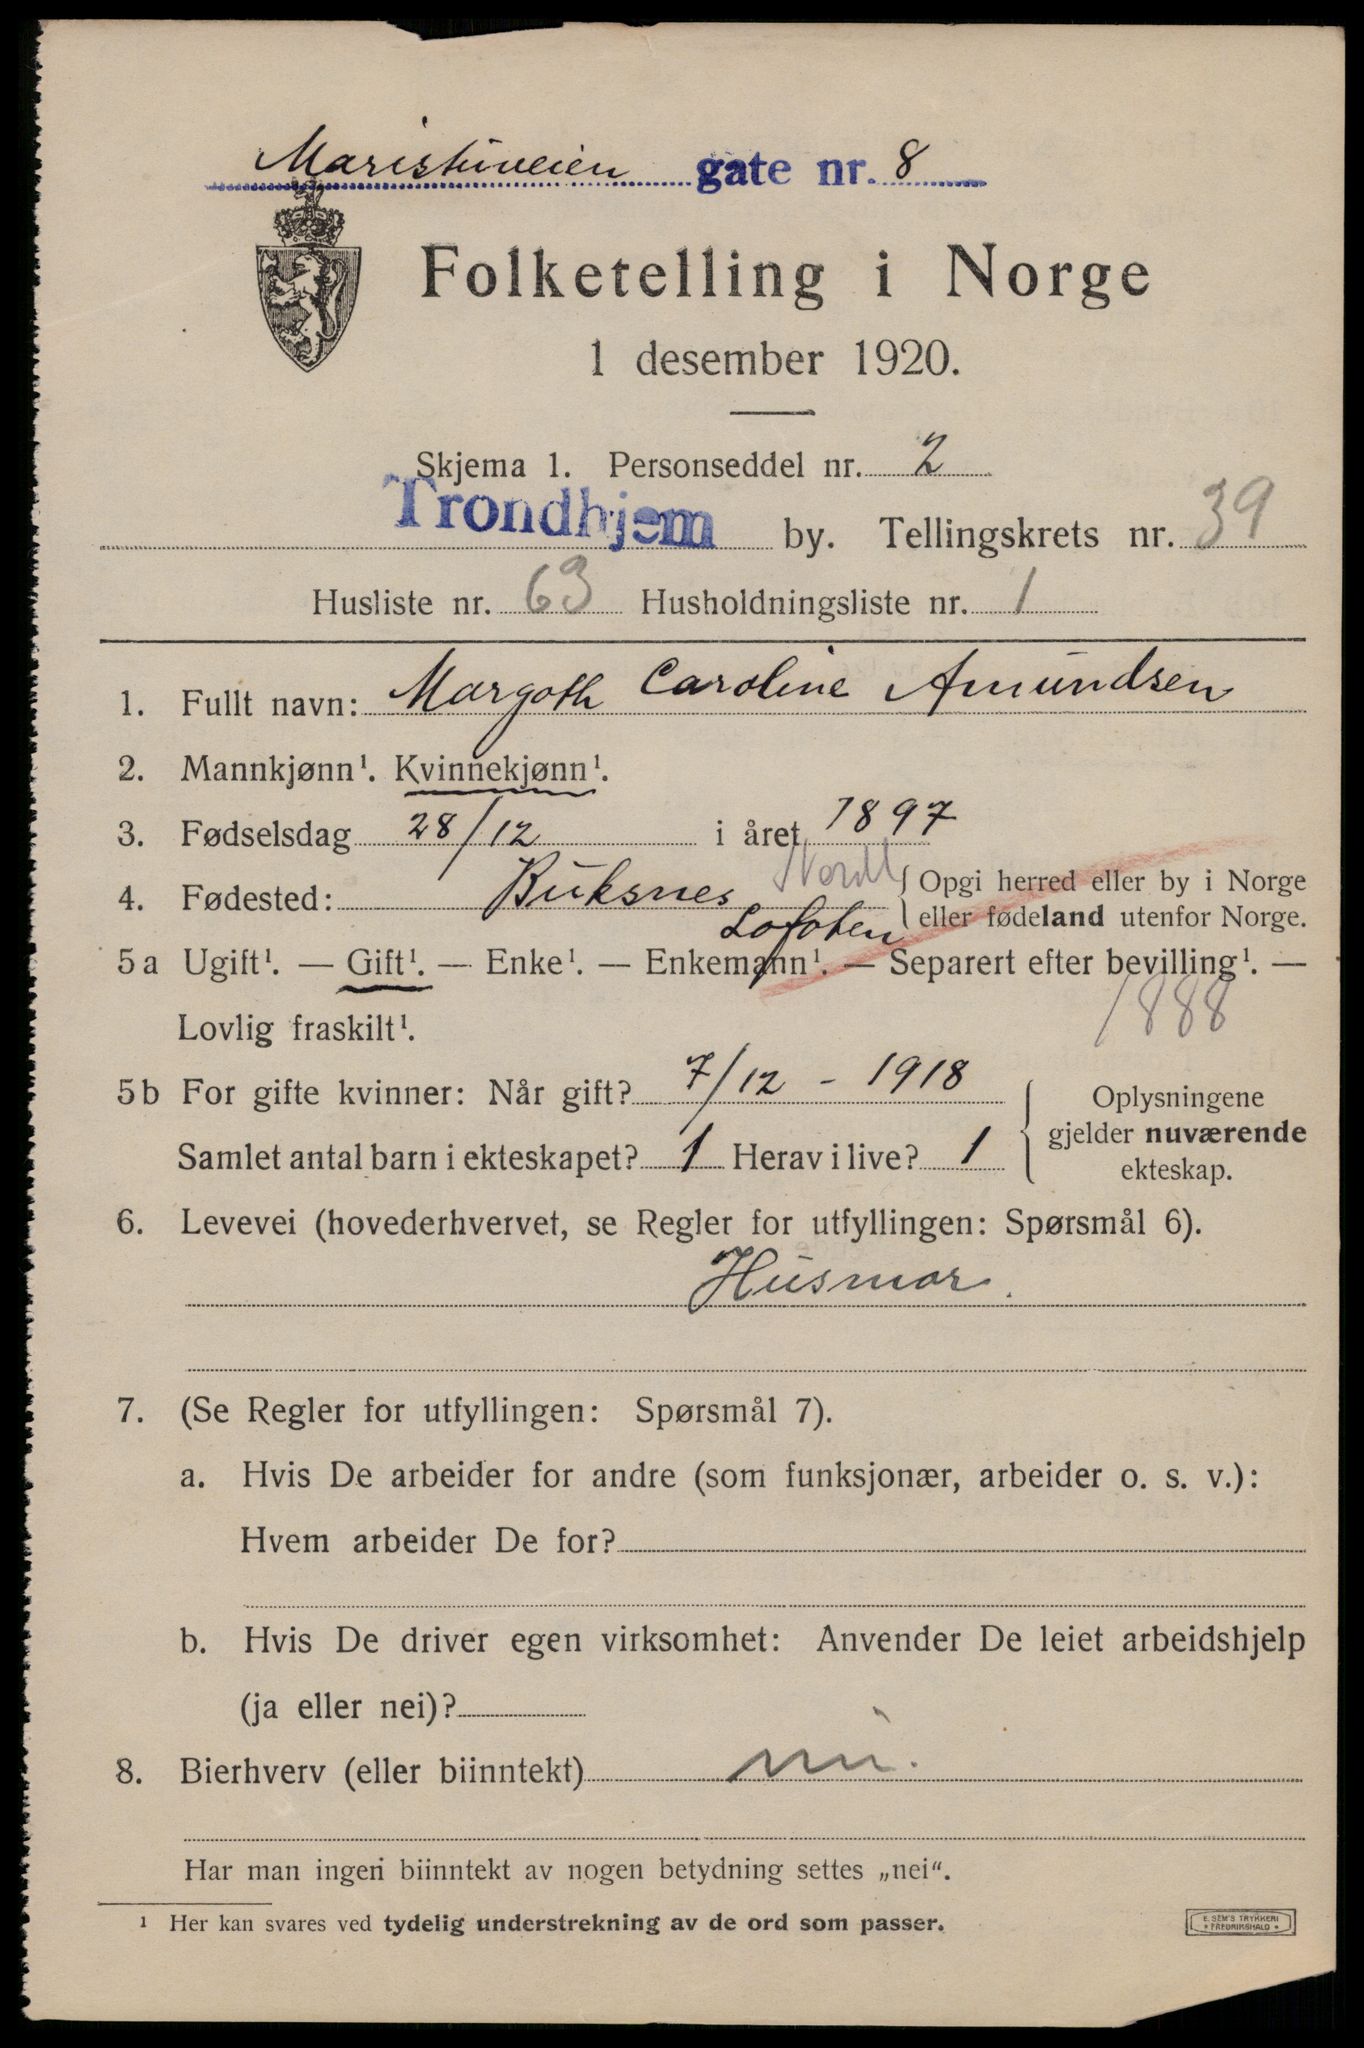 Maristuveien gate nr. 8
Folketelling i Norge
1 desember 1920.
Skjema 1. Personseddel nr. 2
Trondhjem by. Tellingskrets nr. 39
Husliste nr. 63 Husholdningsliste nr. 1
1. Fullt navn: Margoth Caroline Amundsen
2. Mannkjønn¹. Kvinnekjønn¹.
3. Fødselsdag 28/12 i året 1897
4. Fødested: Buksnes Nordl Opgi herred eller by i Norge
Lofoten eller fødeland utenfor Norge.
5a Ugift¹. — Gift¹. — Enke¹. — Enkemann¹. — Separert efter bevilling¹. —
Lovlig fraskilt¹. 1888
5b For gifte kvinner: Når gift? 7/12 - 1918 Oplysningene
gjelder nuværende
Samlet antal barn i ekteskapet? 1 Herav i live? 1 ekteskap.
6. Levevei (hovederhvervet, se Regler for utfyllingen: Spørsmål 6).
Husmor.
7. (Se Regler for utfyllingen: Spørsmål 7).
a. Hvis De arbeider for andre (som funksjonær, arbeider o. s. v.):
Hvem arbeider De for?
b. Hvis De driver egen virksomhet: Anvender De leiet arbeidshjelp
(ja eller nei)?
8. Bierhverv (eller biinntekt) nei.
Har man ingen biinntekt av nogen betydning settes „nei“.
¹ Her kan svares ved tydelig understrekning av de ord som passer.
E. SEM'S TRYKKERI
FREDRIKSHALD